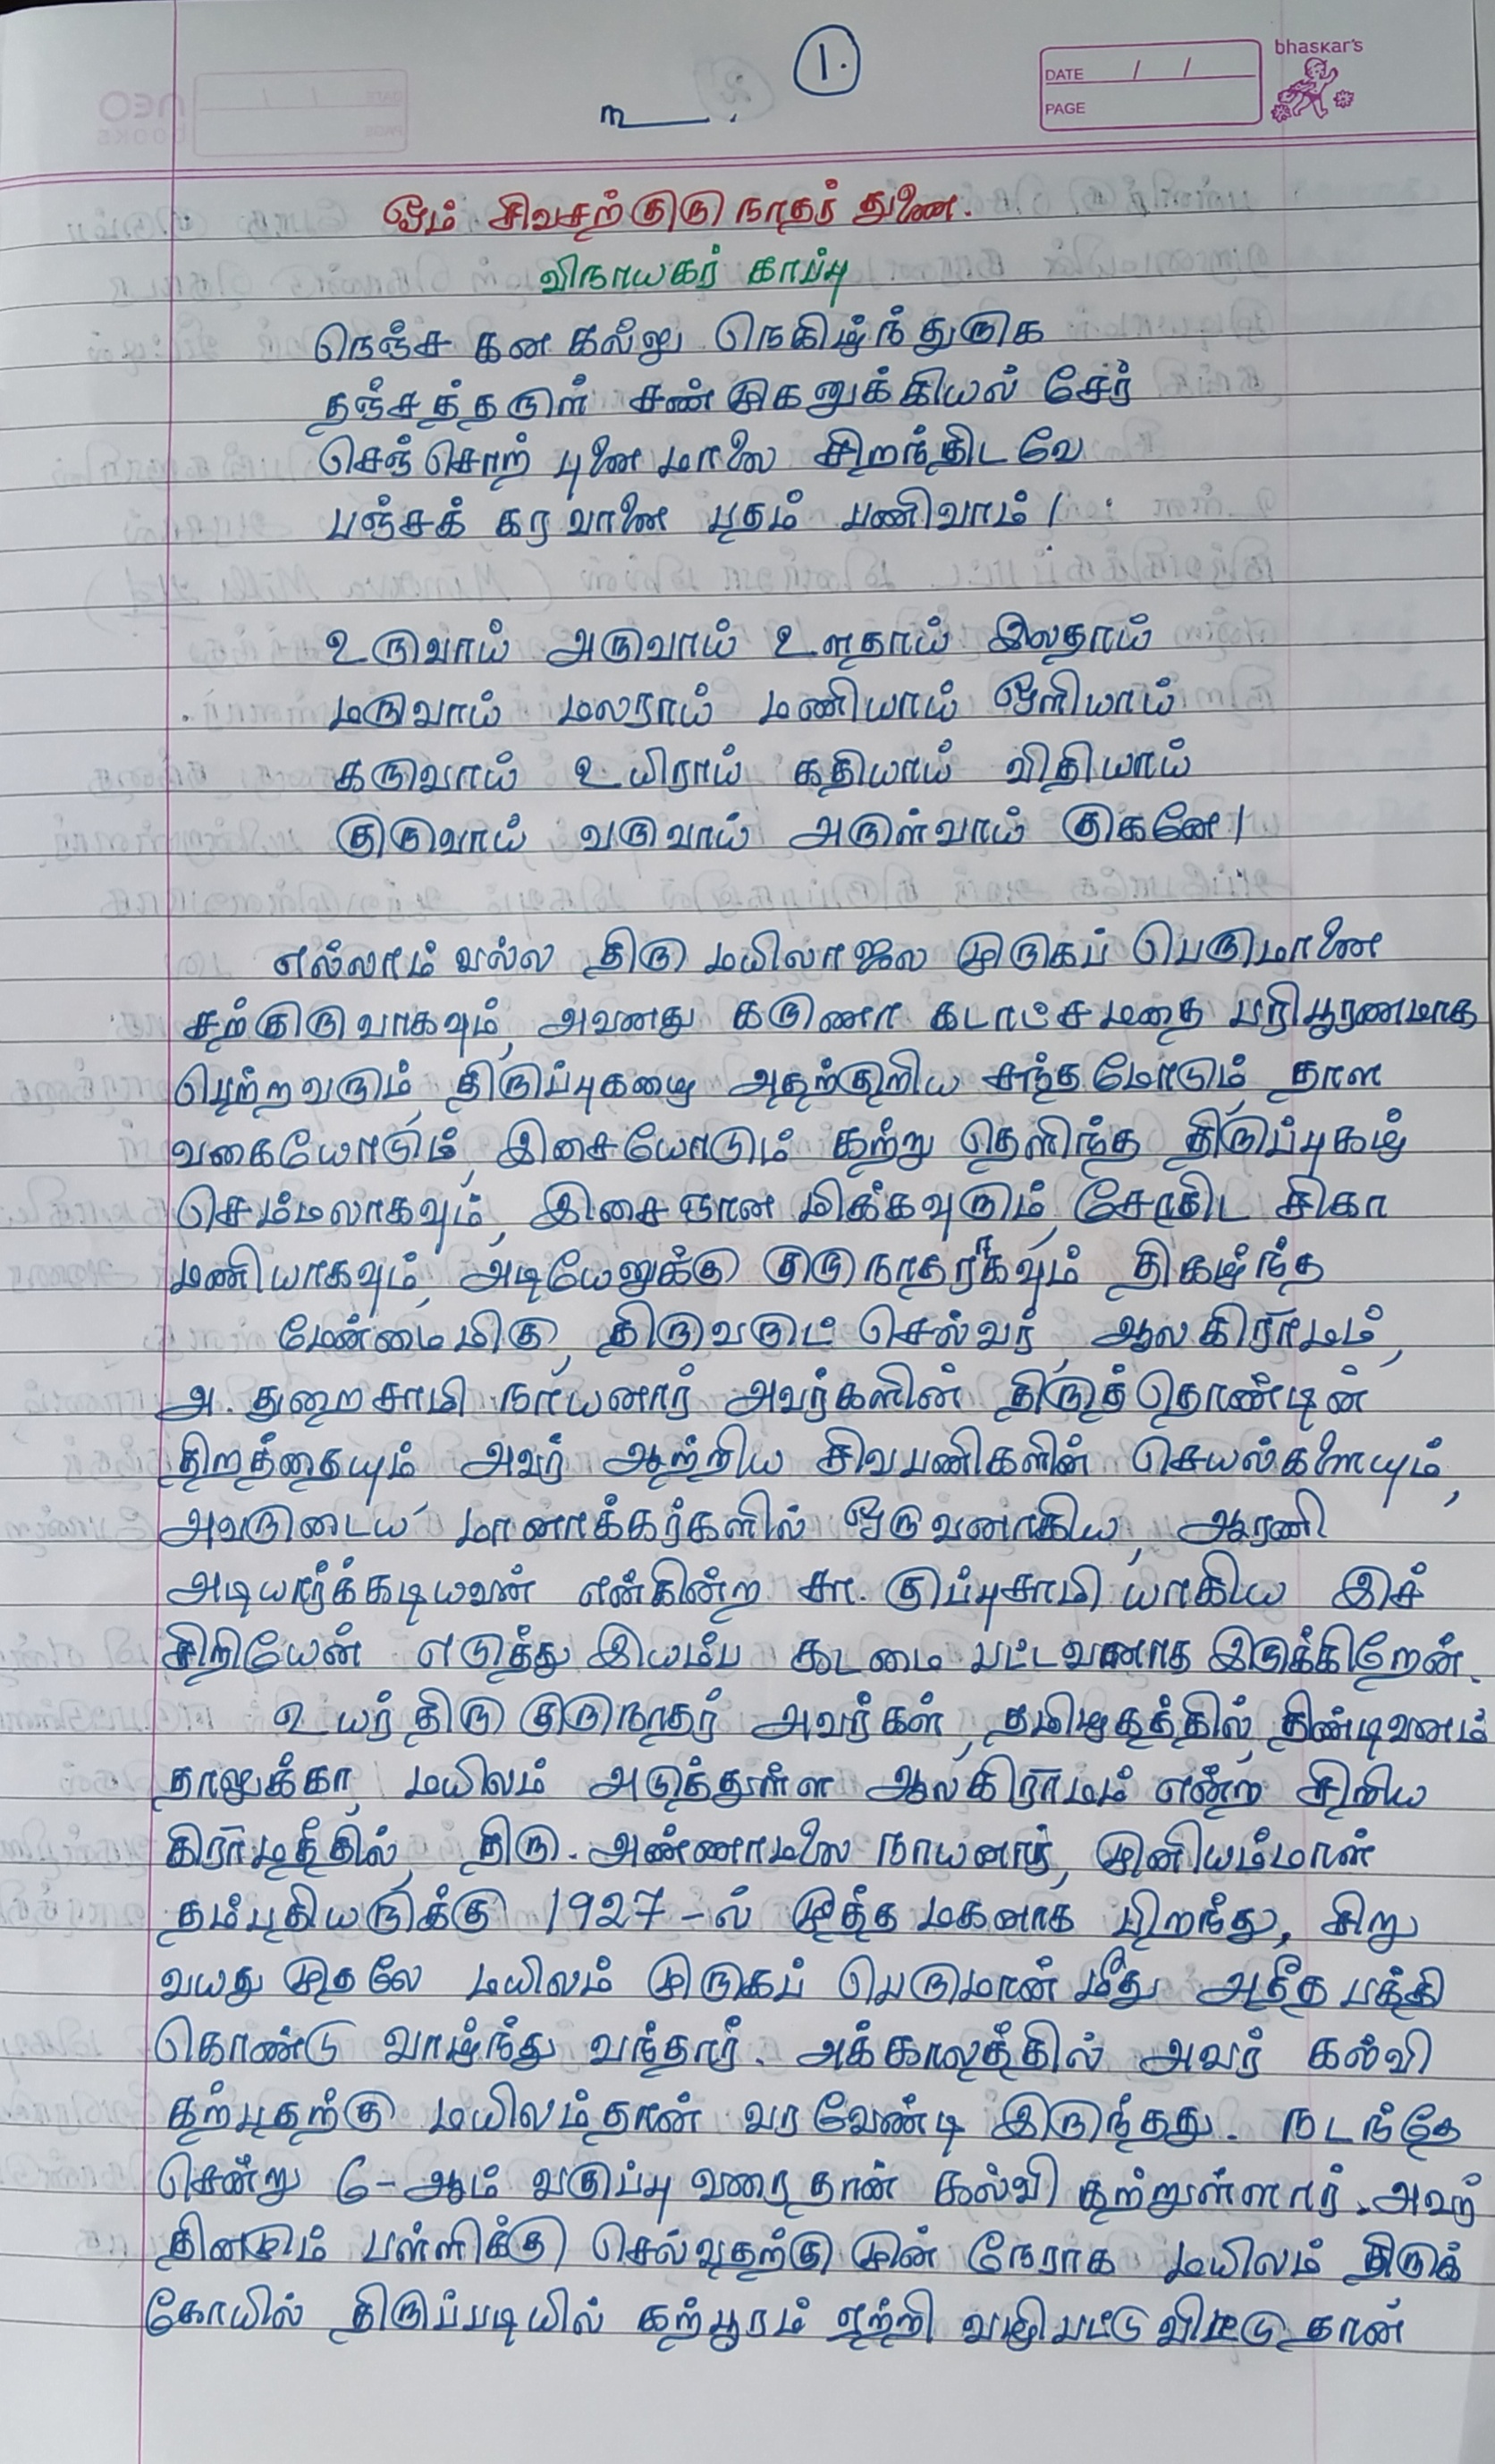 1.
உ
bhaskar's
DATE / /
PAGE
ஓம் சிவசற்குருநாதர் துணை.
விநாயகர் காப்பு
நெஞ்ச கன கல்லு நெகிழ்ந்துருக
தஞ்சத்தருள் சண்முகனுக்கியல் சேர்
செஞ்சொற் புனை மாலை சிறந்திடவே
பஞ்சக் கரவானை பதம் பணிவாம்!
உருவாய் அருவாய் உளதாய் இலதாய்
மருவாய் மலராய் மணியாய் ஒளியாய்
கருவாய் உயிராய் கதியாய் விதியாய்
குருவாய் வருவாய் அருள்வாய் குகனே!
எல்லாம் வல்ல திரு மயிலாஜல முருகப் பெருமானை
சற்குருவாகவும், அவனது கருணா கடாட்சமதை பரிபூரணமாக
பெற்றவரும், திருப்புகழை அதற்குறிய சந்தமோடும், தாள
வகையோடும், இசையோடும் கற்று தெளிந்த திருப்புகழ்
செம்மலாகவும், இசை ஞான மிக்கவரும், சோதிட சிகா
மணியாகவும், அடியேனுக்கு குருநாதராகவும் திகழ்ந்த
மேன்மைமிகு, திருவருட் செல்வர், ஆலகிராமம்,
அ. துறைசாமி நாயனார் அவர்களின் திருத்தொண்டின்
திறத்தையும் அவர் ஆற்றிய சிவபணிகளின் செயல்களையும்,
அவருடைய மானாக்கர்களில் ஒருவனாகிய, ஆரணி
அடியார்க்கடியவன் என்கின்ற சா. குப்புசாமி யாகிய இச்
சிறியேன் எடுத்து இயம்ப கடமை பட்டவனாக இருக்கிறேன்.
உயர்திரு குருநாதர் அவர்கள், தமிழகத்தில், திண்டிவனம்
தாலுக்கா, மயிலம் அடுத்துள்ள ஆலகிராமம் என்ற சிறிய
கிராமத்தில், திரு. அண்ணாமலை நாயனார், முனியம்மாள்
தம்பதியருக்கு 1927-ல் மூத்த மகனாக பிறந்து, சிறு
வயது முதலே மயிலம் முருகப் பெருமான் மீது அதீத பக்தி
கொண்டு வாழ்ந்து வந்தார். அக்காலத்தில் அவர் கல்வி
கற்பதற்கு மயிலம்தான் வரவேண்டி இருந்தது. நடந்தே
சென்று 6-ஆம் வகுப்பு வரைதான் கல்வி கற்றுள்ளார். அவர்
தினமும் பள்ளிக்கு செல்வதற்கு முன் நேராக மயிலம் திருக்
கோயில் திருப்படியில் கற்பூரம் ஏற்றி வழிபட்டு விட்டு தான்